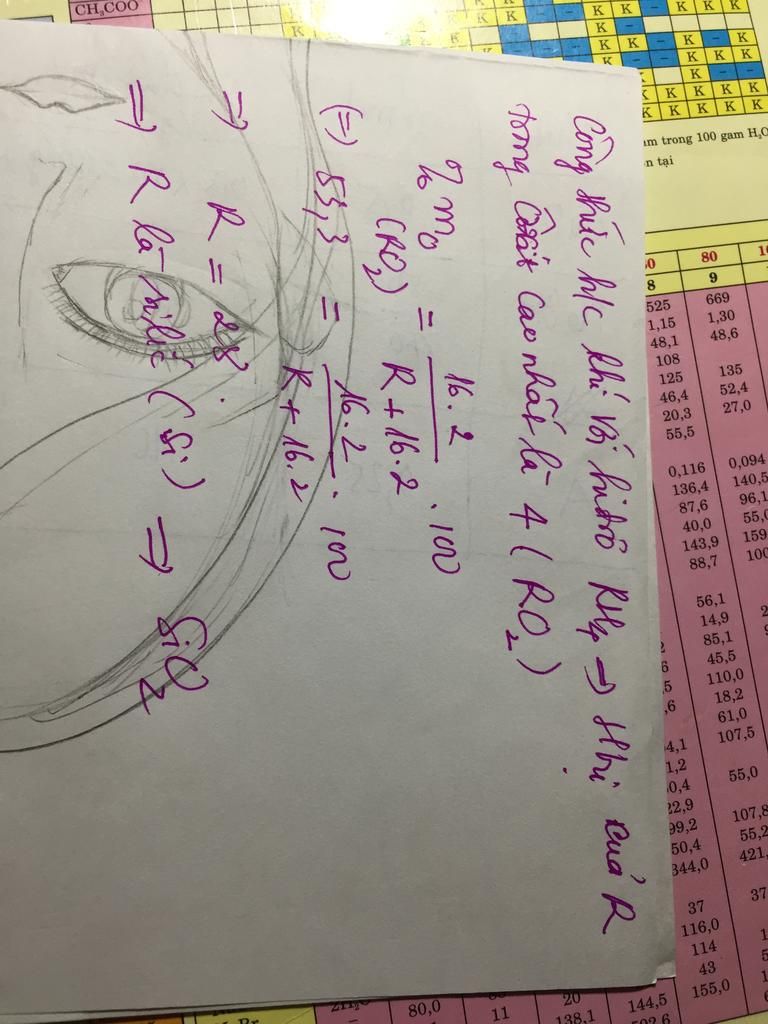 Công thức h/c khí với hiđrô RH₄ => Htrị của R
trong Oxit cao nhất là 4 (RO₂)
%mO (RO₂) = 16.2 / R + 16.2 . 100
(=) 53,3 = 16.2 / R + 16.2 . 100
=> R = 28.
=> R là silic (Si) => SiO₂
CH₃COO
K K K K
am trong 100 gam H₂O
n tại
80
8 9
525 669
1,15 1,30
48,1 48,6
108
125 135
46,4 52,4
20,3 27,0
55,5
0,116 0,094
136,4 140,5
87,6 96,1
40,0 55,0
143,9 159
88,7 100
56,1
14,9
85,1
45,5
110,0
18,2
61,0
107,5
4,1
1,2 55,0
0,4
22,9 107,8
99,2 55,2
50,4 421,
344,0
37 37
116,0
114
43
155,0
80,0 11 20 144,5
138,1 502,6